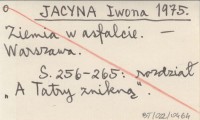 JACYNA Iwona 1975.
Ziemia w asfalcie. —
Warszawa.
S. 256-265: rozdział
„A Tatry znikną".